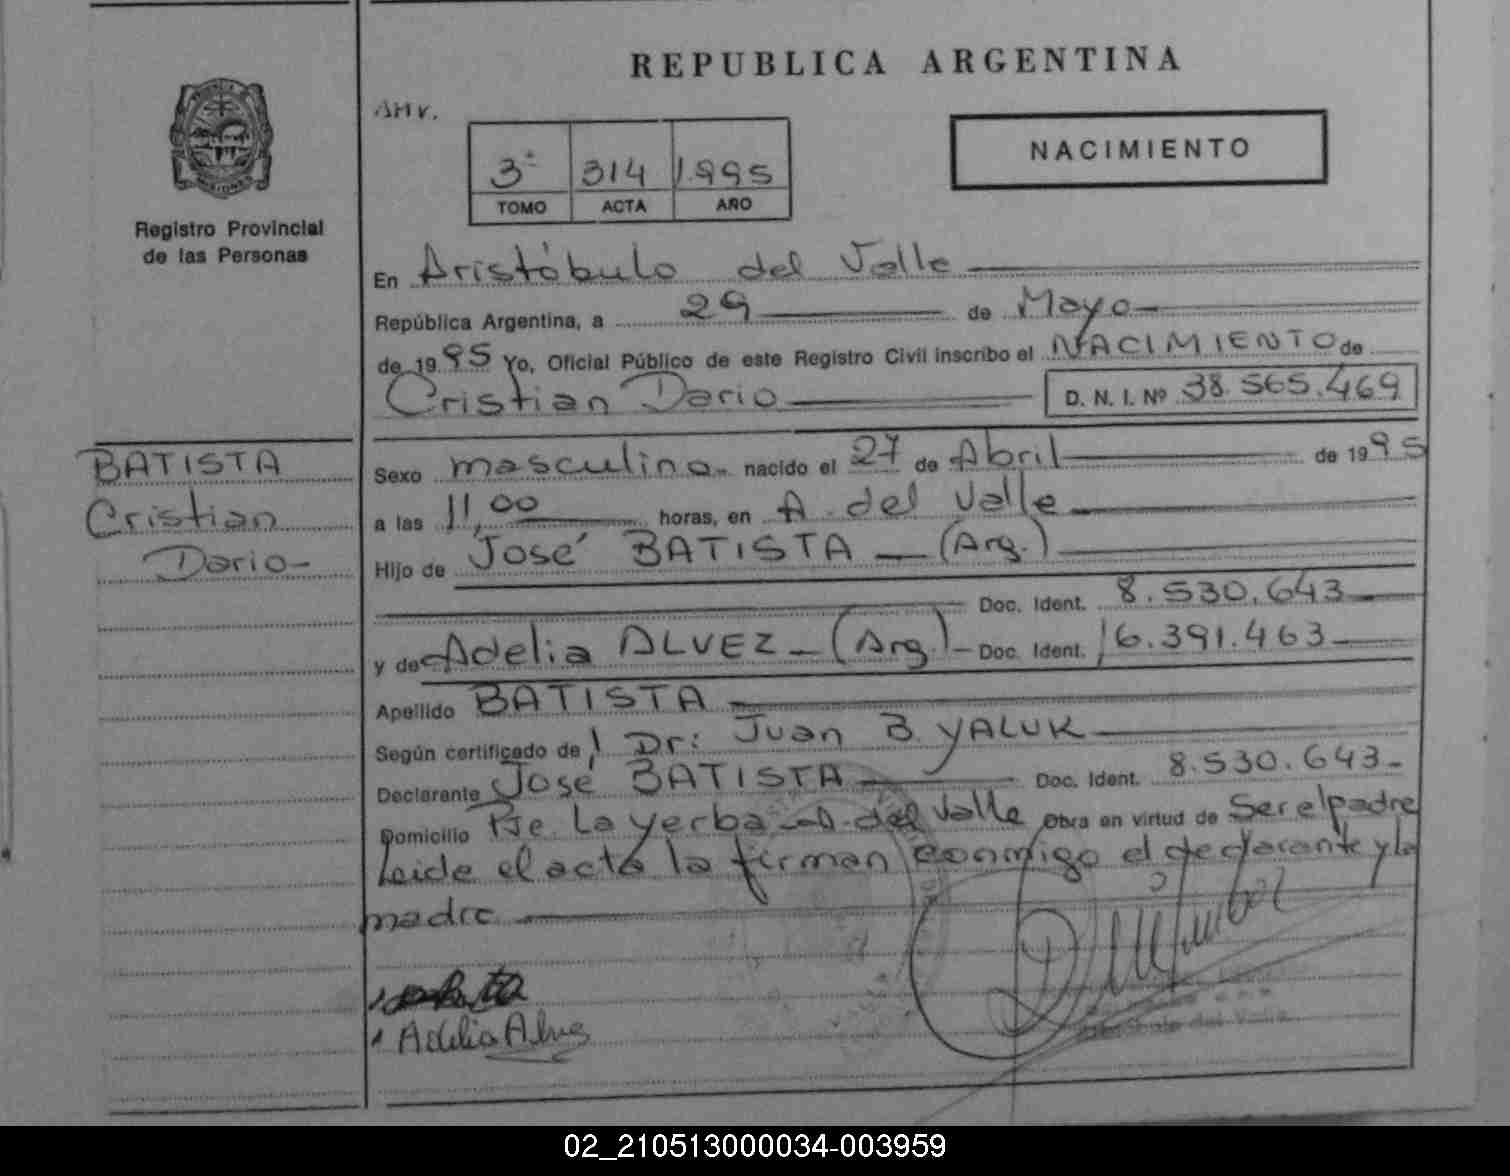 REPUBLICA ARGENTINA
NACIMIENTO
3ª 314 1.995
TOMO ACTA AÑO
MISIONES
Registro Provincial
de las Personas
En Aristóbulo del Valle
República Argentina, a 29 de Mayo
de 1995 Yo, Oficial Público de este Registro Civil inscribo el NACIMIENTO de
Cristian Dario D. N. I. Nº 38.565.469
BATISTA
Cristian
Dario-
Sexo masculino nacido el 27 de Abril de 1995
a las 11,00 horas, en A. del Valle
Hijo de José BATISTA - (Arg.)
Doc. Ident. 8.530.643
y de Adelia ALVEZ - (Arg.) - Doc. Ident. 16.391.463
Apellido BATISTA
Según certificado de Dr: Juan B. YALUK
Declarante José BATISTA Doc. Ident. 8.530.643-
Domicilio Pje. La Yerba - A. del Valle Obra en virtud de Ser el padre
Leida el acta la firman conmigo el declarante y la
madre
Adelia Alvez
02_210513000034-003959